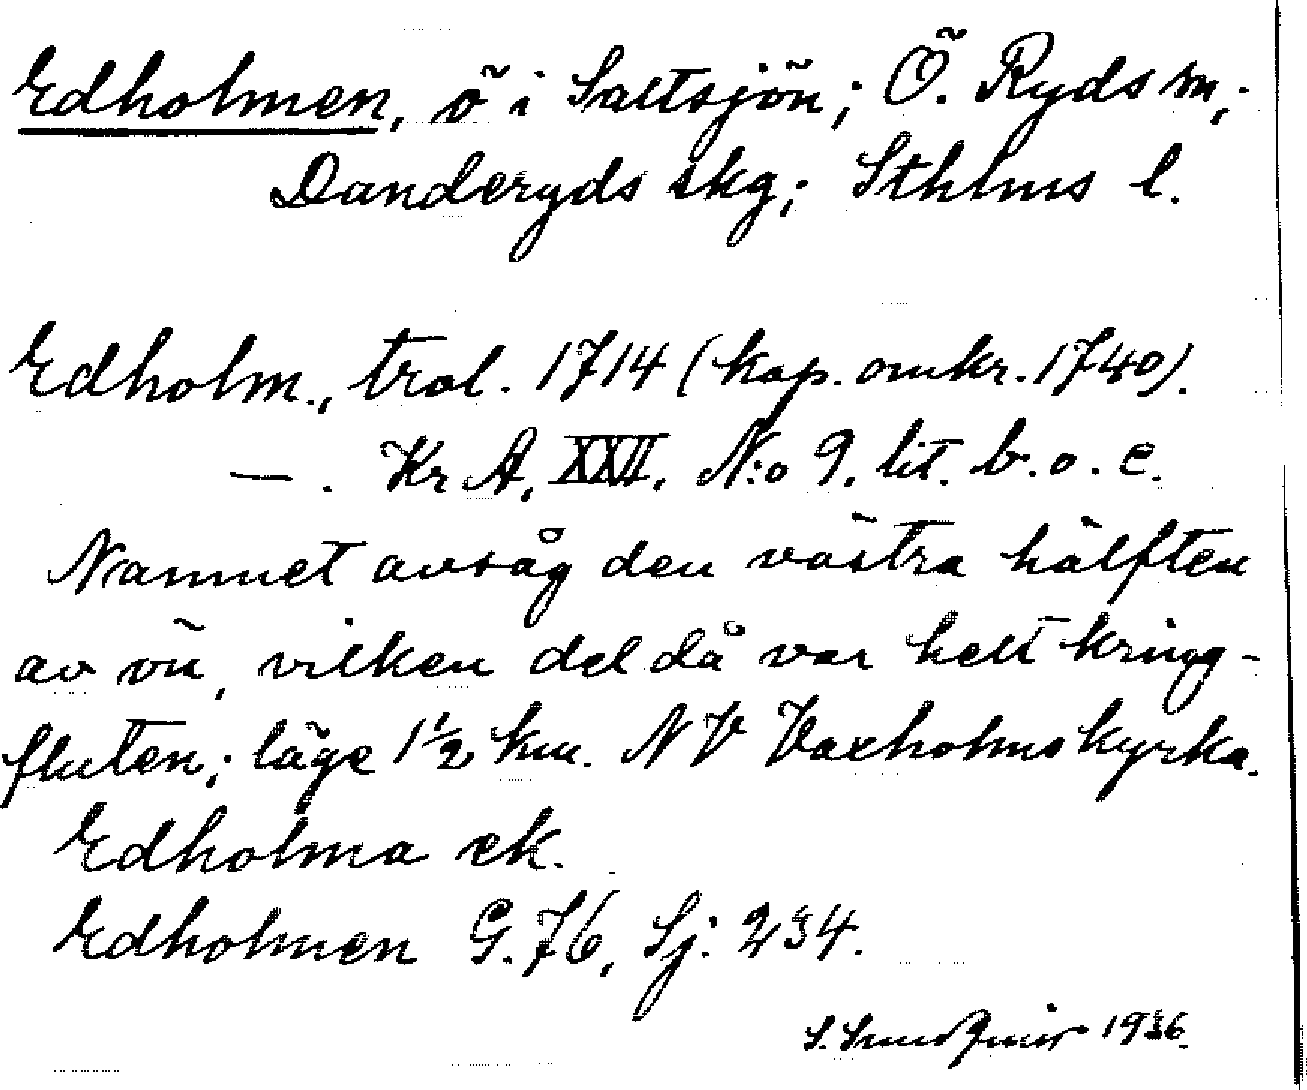 Edholmen, ö i Saltsjön; Ö. Ryds sn,;
Danderyds skg; Sthlms l.
Edholm., trol. 1714 (kop. omkr. 1740).
—. Kr A, XXII. N:o 9. lit. b. o. c.
Namnet avsåg den västra hälften
av ön, vilken del då var helt kring-
fluten; läge 1 1/2 km. NV Vaxholms kyrka.
Edholma ek.
Edholmen G. 76, Sj: 234.
1936